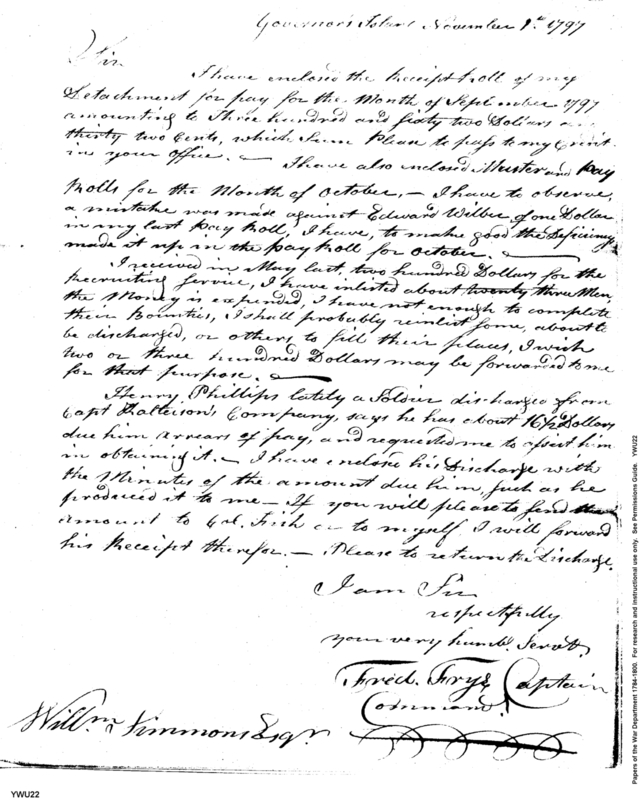 Governor's Island November 1st 1797
Sir
I have enclosed the Receipt Roll of my
Detachment for pay for the Month of September 1797
amounting to Three hundred and sixty two Dollars
thirty two Cents, which Sum Please to pass to my Credit
in your office. — I have also enclosed Muster and Pay
Rolls for the Month of October, — I have to observe,
a mistake was made against Edward Wilber of one Dollar
in my last Pay Roll, I have, to make good the Deficiency
made it up in the Pay Roll for October. —
I received in May last, two hundred Dollars for the
Recruiting Service, I have inlisted about twenty three Men,
the Money is expended, I have not enough to complete
their Bounties, I shall probably reinlist some, about to
be discharged, or others to fill their places, I wish
two or three hundred Dollars may be forwarded to me
for that purpose. —
Henry Phillips lately a Soldier discharged from
Capt Patterson's Company, says he has about 16½ Dollars
due him arrears of pay, and requested me to assist him
in obtaining it. — I have enclosed his Discharge with
the Minutes of the amount due him, such as he
produced it to me — If you will please to send the
amount to Col. Fish or to myself I will forward
his Receipt therefor. — Please to return the Discharge.
I am Sir
respectfully
your very humb. Servt.
Fred. Frye Captain
Command.
Willm. Simmons Esqr.
YWU22
Papers of the War Department 1784-1800. For research and instructional use only. See Permissions Guide. YWU22